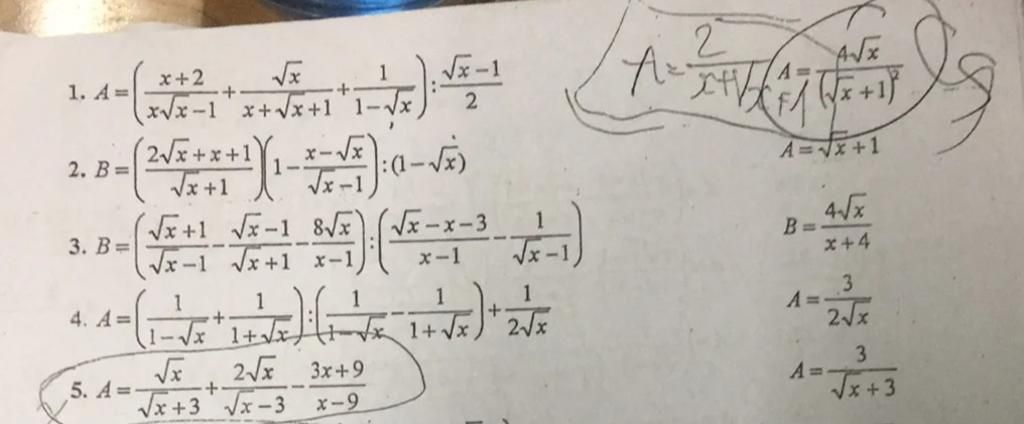 1. A = ( (x+2)/(x√x−1) + √x/(x+√x+1) + 1/(1−√x) ) : (√x−1)/2
A = 2/(x+√x+1)
A = 4√x/(√x+1)²
2. B = ( (2√x+x+1)/(√x+1) )( 1 − (x−√x)/(√x−1) ) : (1−√x)
A = √x+1
3. B = ( (√x+1)/(√x−1) − (√x−1)/(√x+1) − 8√x/(x−1) ) : ( (√x−x−3)/(x−1) − 1/(√x−1) )
B = 4√x/(x+4)
4. A = ( 1/(1−√x) + 1/(1+√x) ) : ( 1/(1−√x) − 1/(1+√x) ) + 1/(2√x)
A = 3/(2√x)
5. A = √x/(√x+3) + 2√x/(√x−3) − (3x+9)/(x−9)
A = 3/(√x+3)